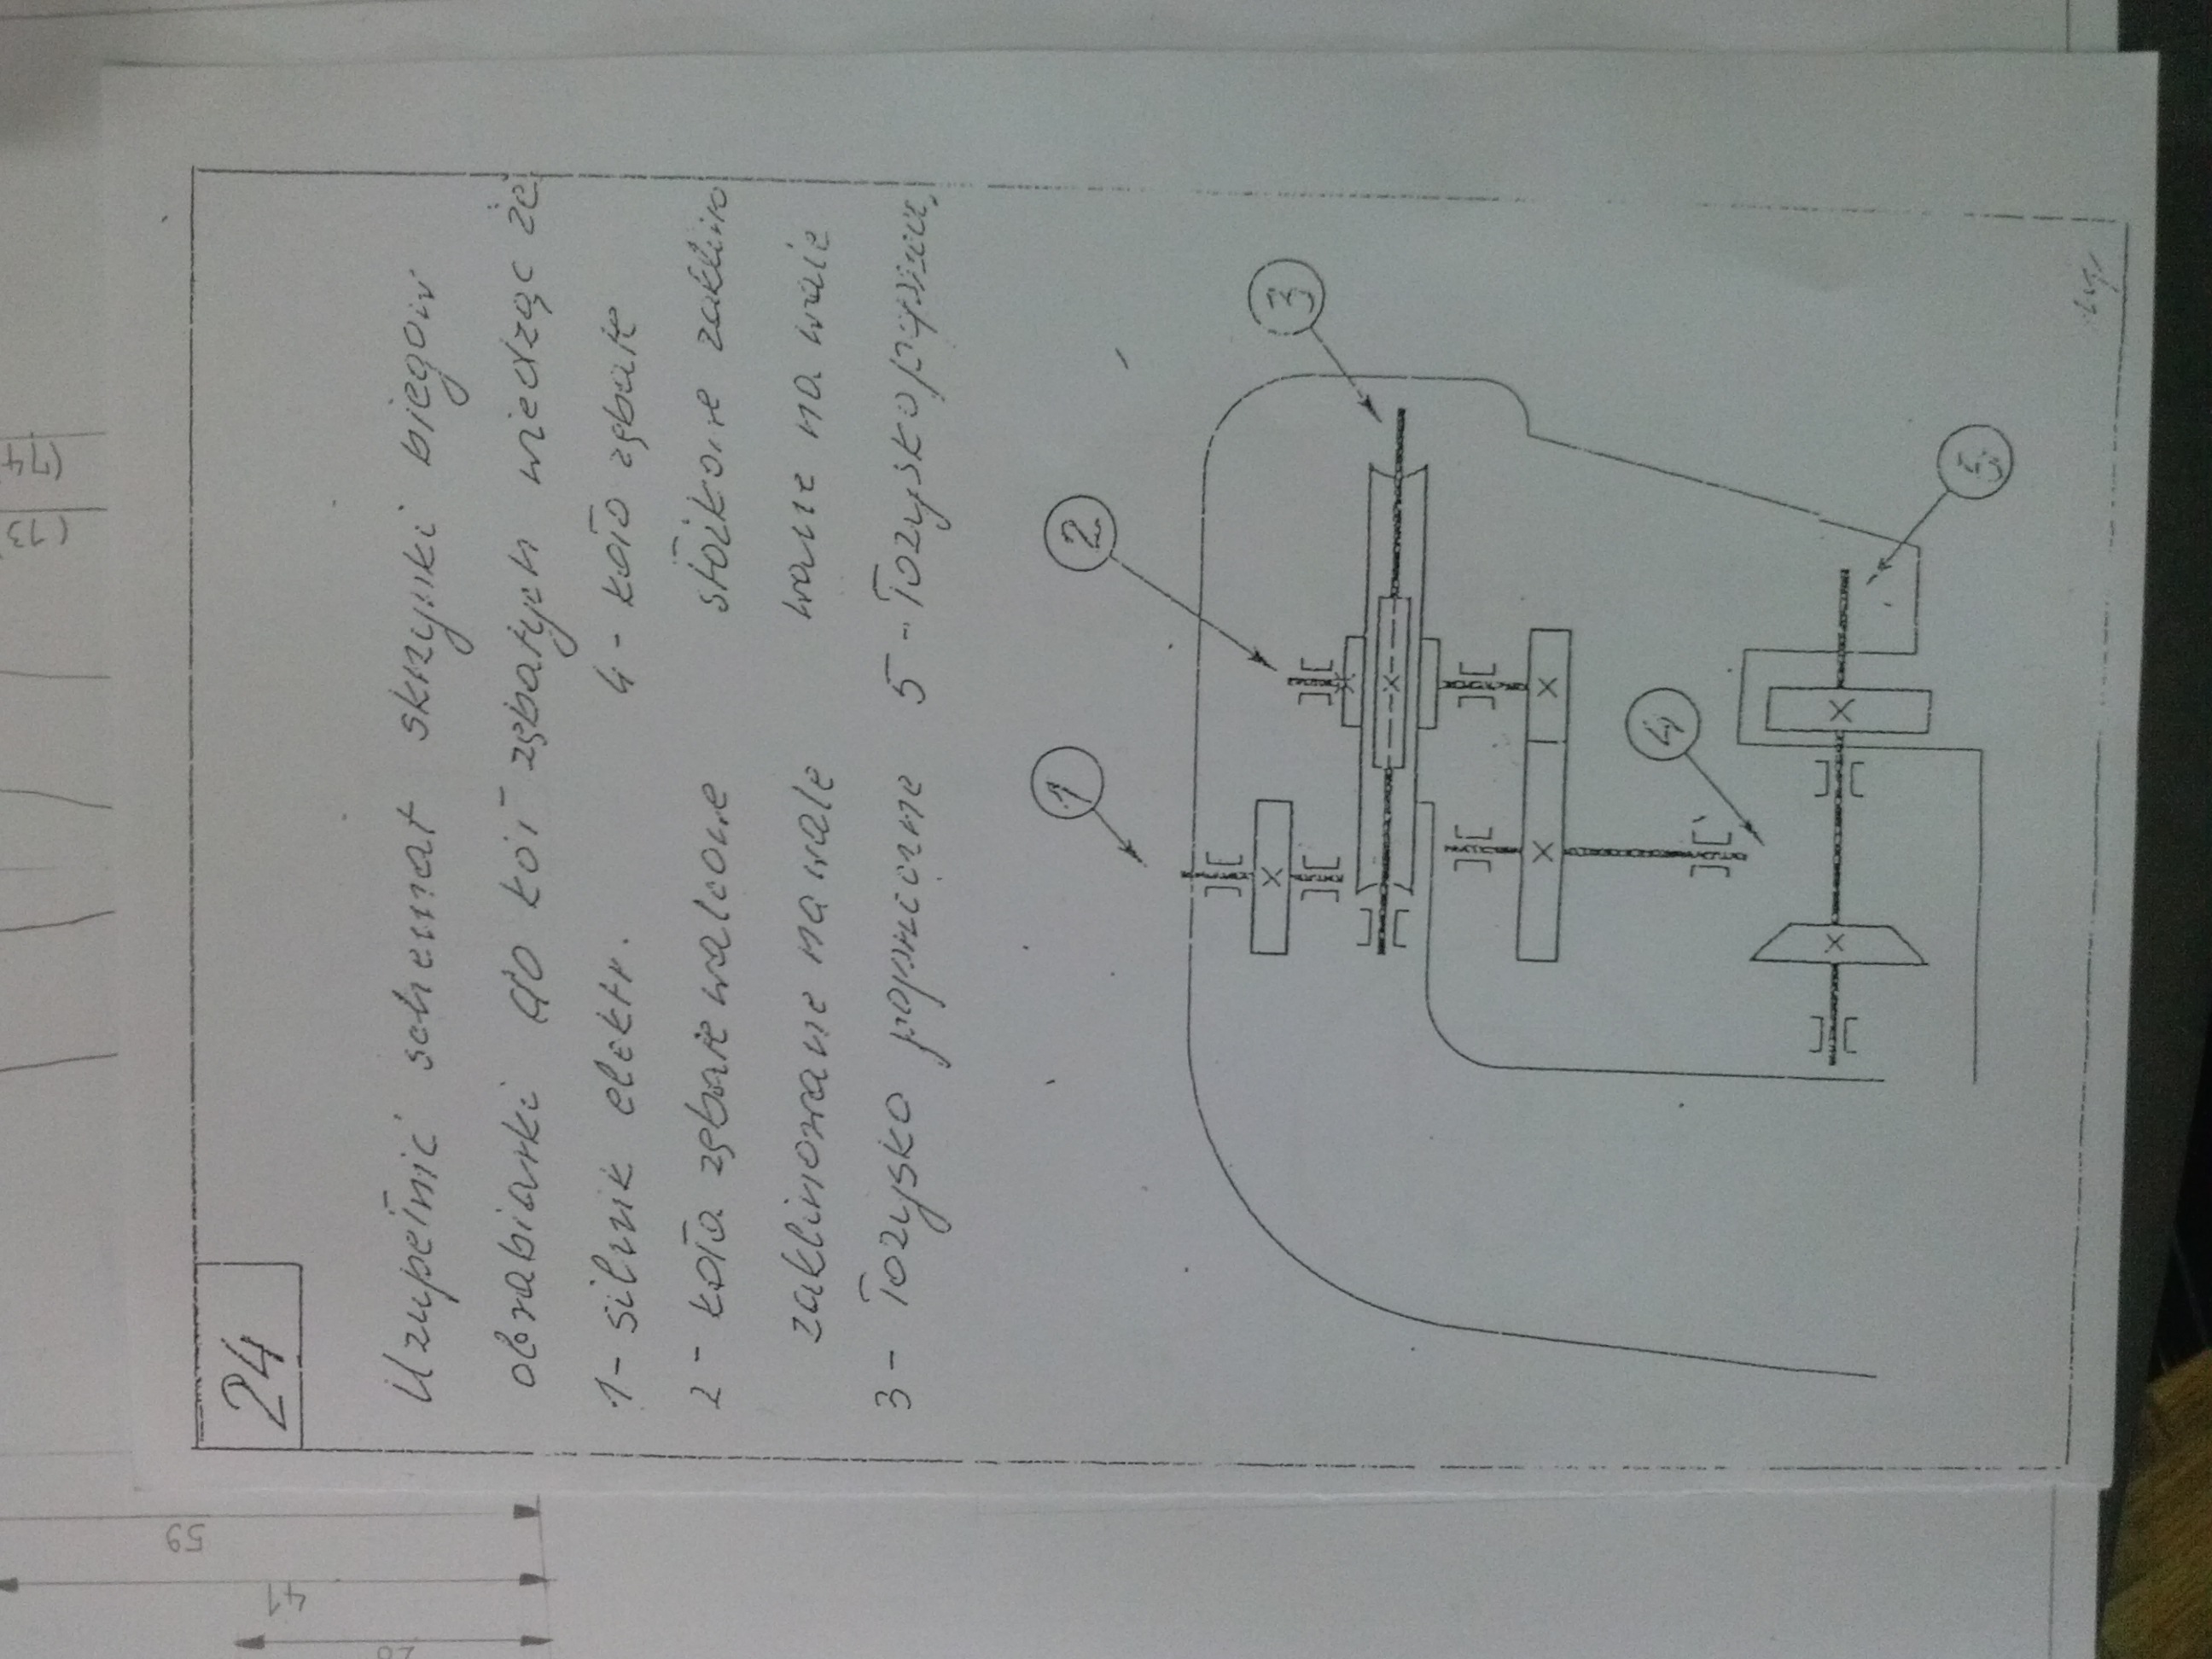 24
Uzupełnić schemat skrzynki biegów
obrabiarki do kół zębatych wiedząc że
1- silnik elektr.
2- koła zębate walcowe
zaklinowane na wale
3- łożysko poprzeczne
4- koło zębate
stożkowe zaklino
wane na wale
5- łożysko poprzeczne,
1
2
3
4
5
59
41